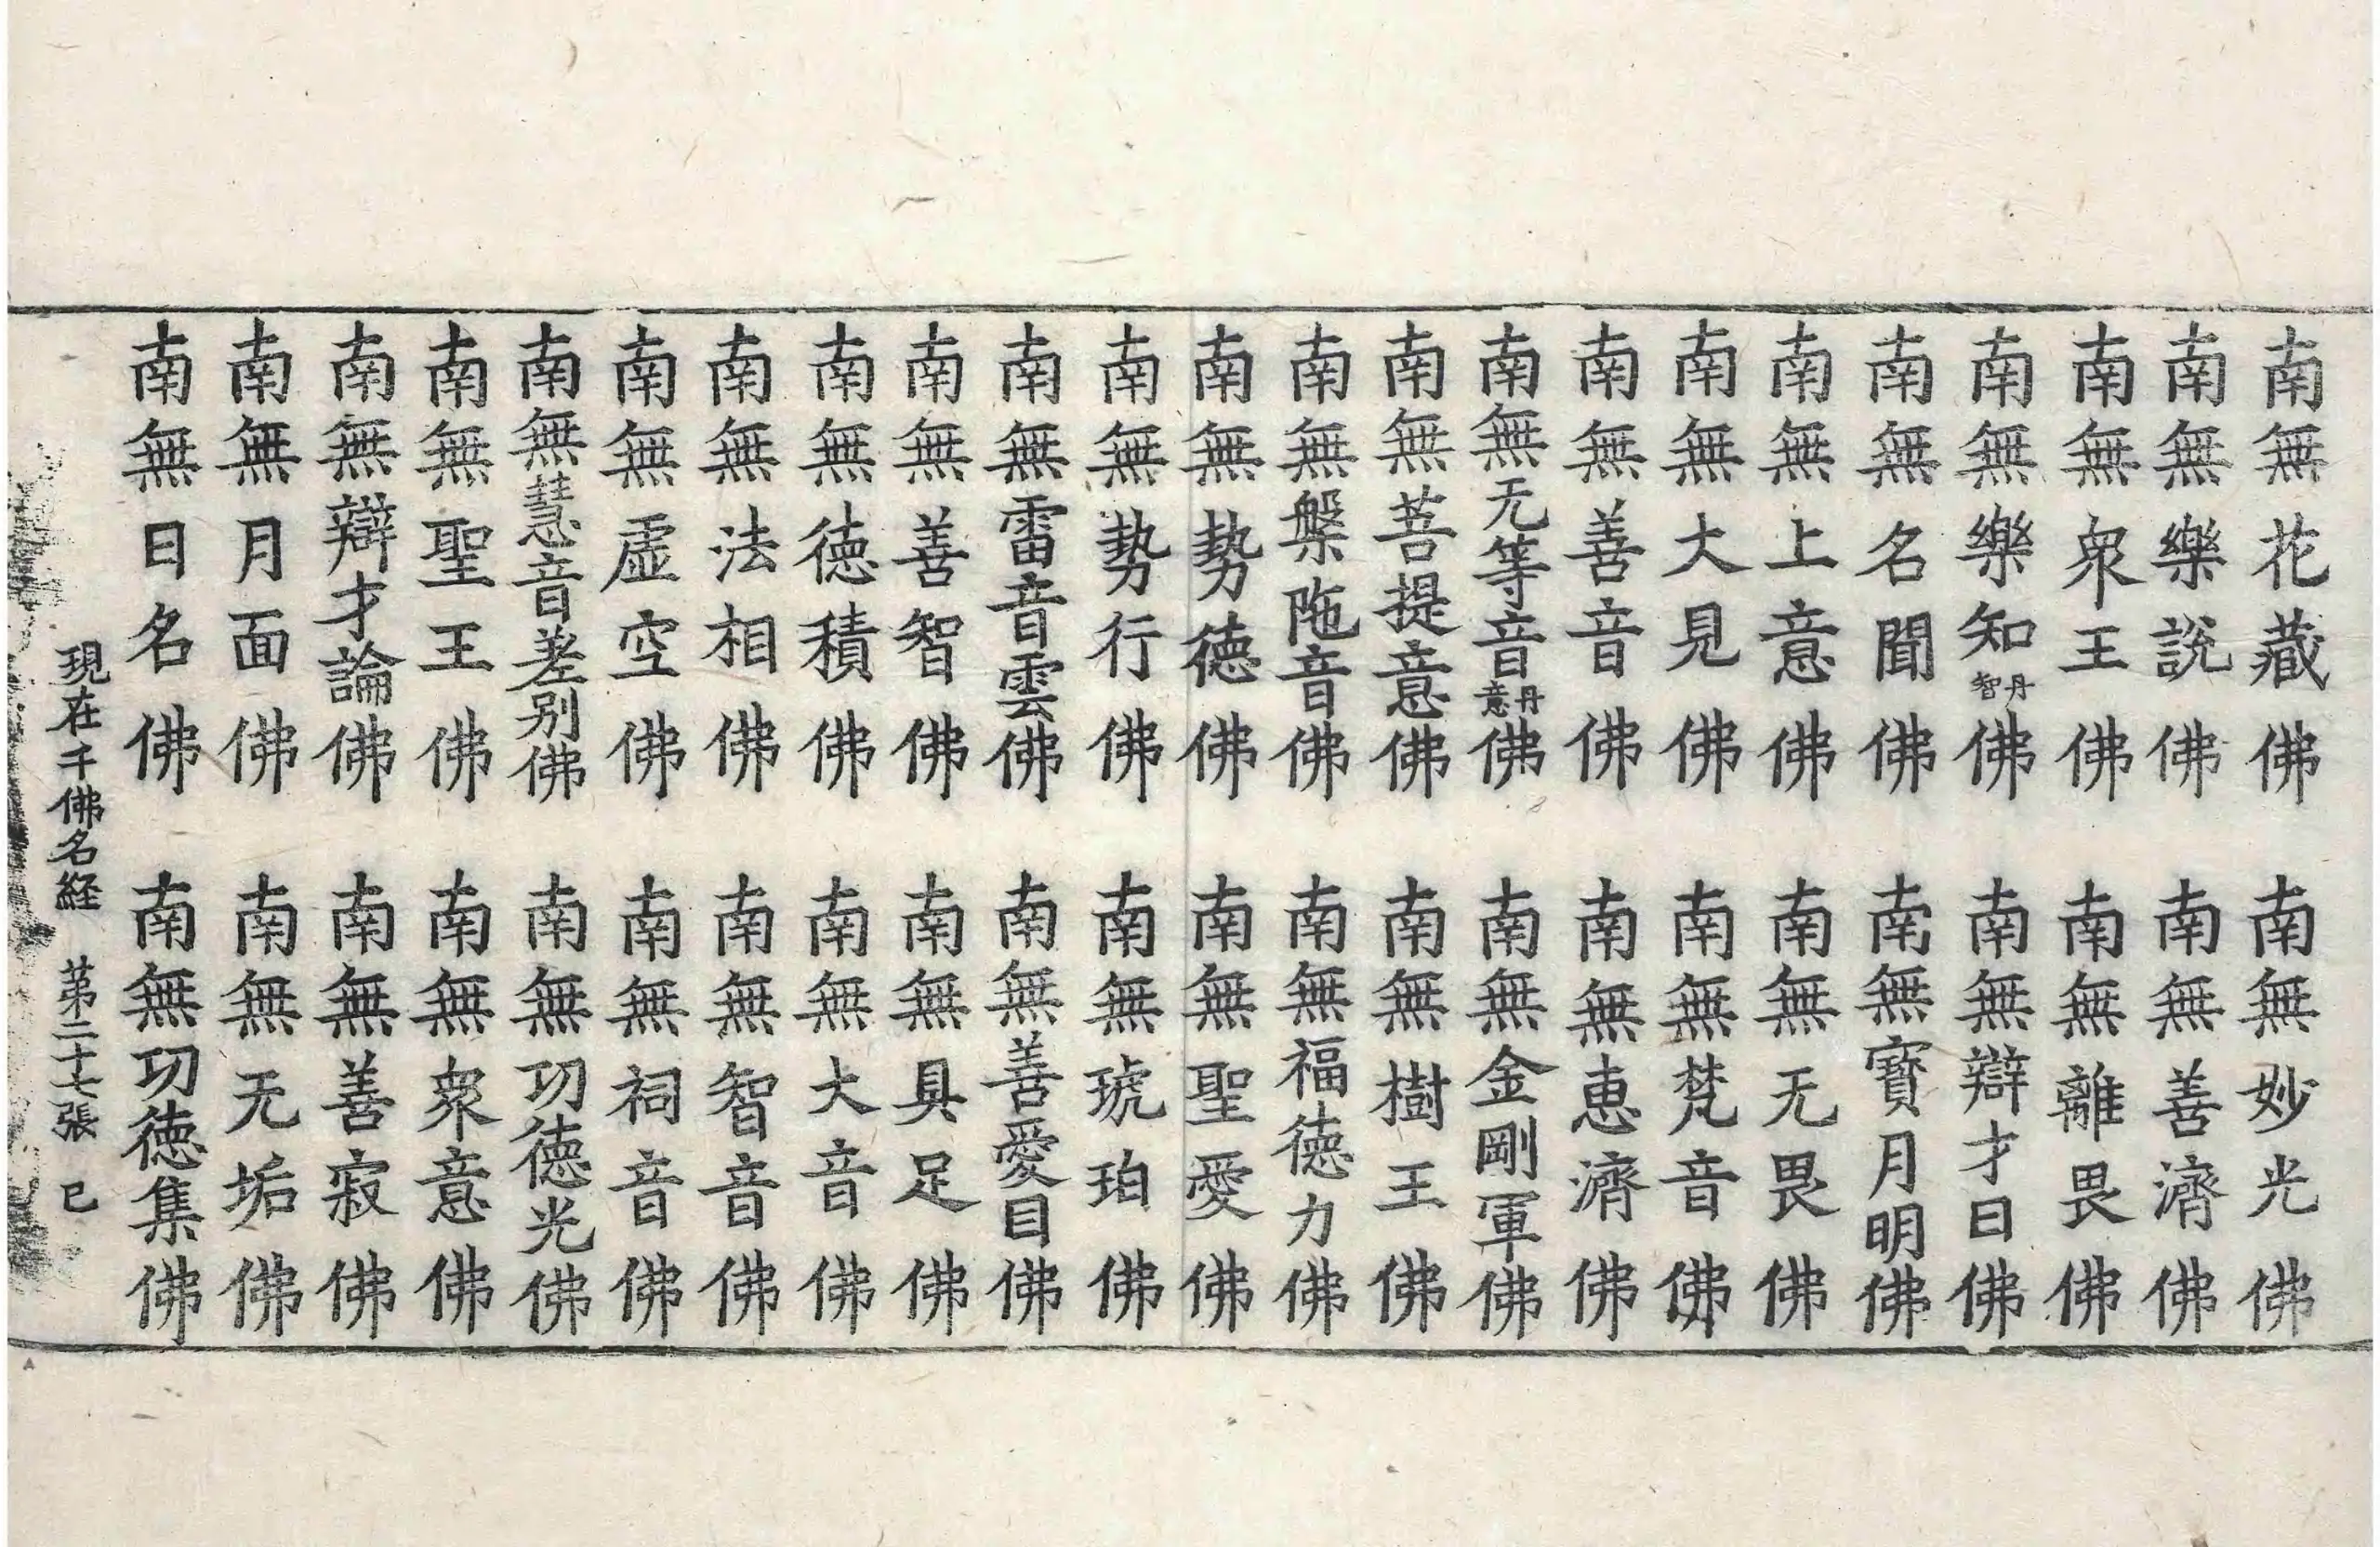 南無花藏佛　南無妙光佛
南無樂說佛　南無善濟佛
南無衆王佛　南無離畏佛
南無樂知丹智佛　南無辯才日佛
南無名聞佛　南無寶月明佛
南無上意佛　南無无畏佛
南無大見佛　南無梵音佛
南無善音佛　南無恵濟佛
南無无等音丹意佛　南無金剛軍佛
南無菩提意佛　南無樹王佛
南無槃陁音佛　南無福德力佛
南無勢德佛　南無聖愛佛
南無勢行佛　南無琥珀佛
南無雷音雲佛　南無善愛目佛
南無善智佛　南無具足佛
南無德積佛　南無大音佛
南無法相佛　南無智音佛
南無虛空佛　南無祠音佛
南無慧音差别佛　南無功德光佛
南無聖王佛　南無衆意佛
南無辯才論佛　南無善寂佛
南無月面佛　南無无垢佛
南無日名佛　南無功德集佛
現在千佛名経　苐二十七張　已